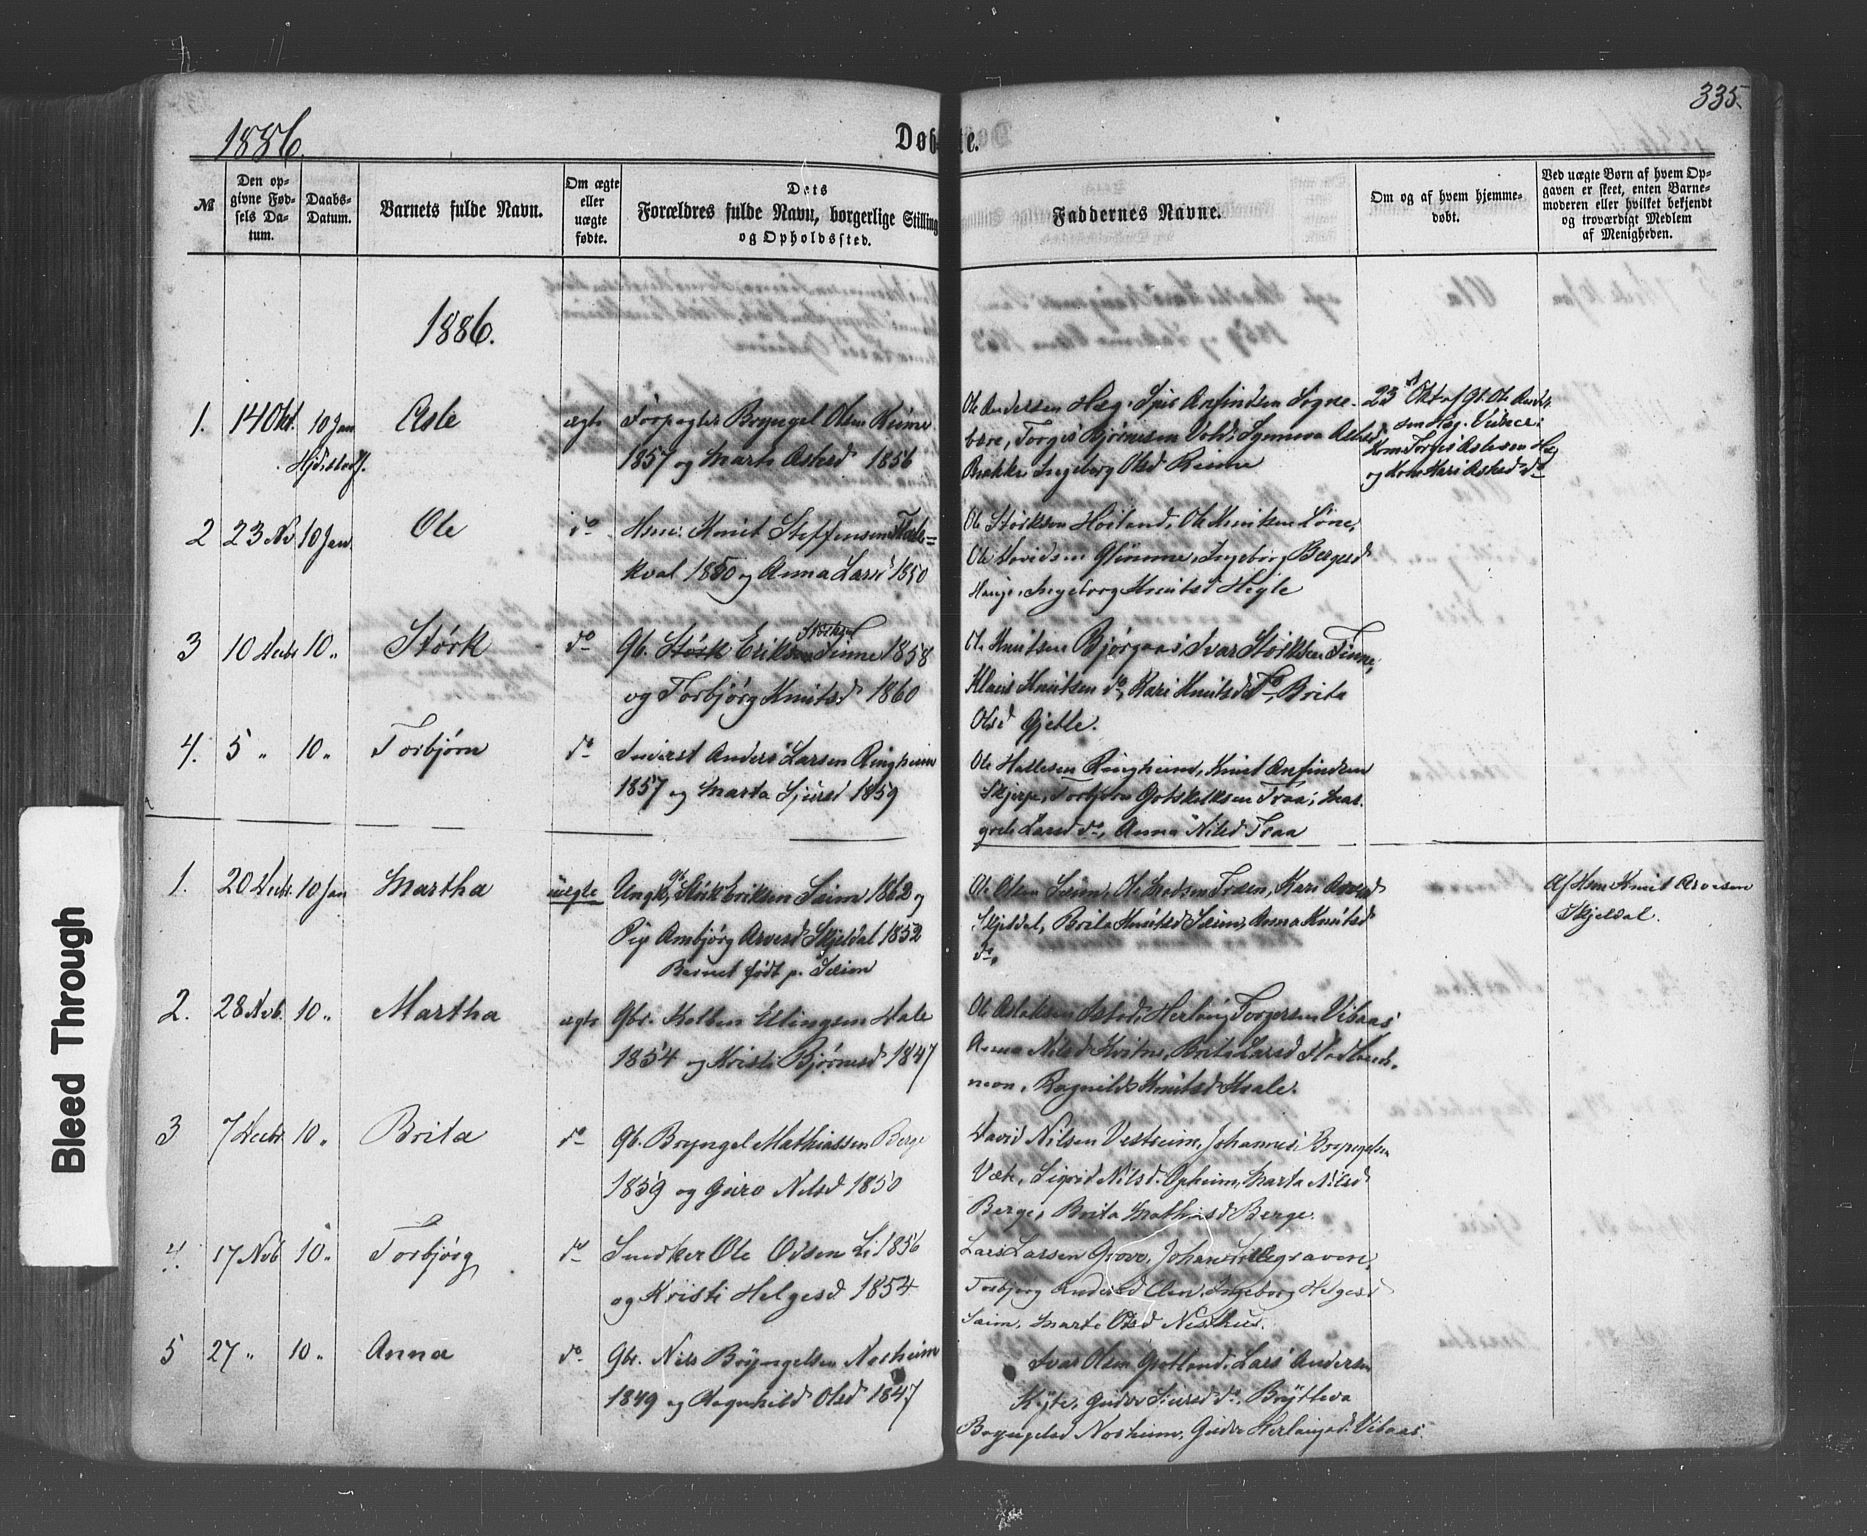 335.
1886.
Døbte.
№
Den opgivne Fødsels Datum.
Daabs-Datum.
Barnets fulde Navn.
Om ægte eller uægte fødte.
Dets Forældres fulde Navn, borgerlige Stilling og Opholdssted.
Faddernes Navne.
Om og af hvem hjemmedøbt.
Ved uægte Børn af hvem Opgaven er skeet, enten Barnemoderen eller hvilket bekjendt og troværdigt Medlem af Menigheden.
1886.
1. 14 Okt. 10 Jan Asle ægte Forpagter Bryngel Olsen Rime
1857 og Marta Aslesd 1856
Ole Andersen Hæg, Anfindsen Sogne-
Torgis Bjørnsen Synneva
Brække Ingeborg Olsd Rime
23 Okt af Gb. Ole Ander
sen Hæg. Vidner:
Kone Torgis Aslesen Hæg
og Kone Kari Aslesd do
2 23 Nv 10 Jan. Ole do Hmd. Knut Steffensen
1850 og Anna Larsd 1850
Ole Størksen Ole Knutsen Løne,
Ole Davidsen Glimme, Ingeborg Bergesd
Hauge, Ingeborg Knutsd Hegle
3 10 Decbr 10 „ Størk do Gb. Størk Eriksen Størksen Finne 1858
og Torbjørg Knutsd 1860
Ole Knutsen Bjørgaas Ivar Størksen Finne,
Klaus Knutsen do, Kari Knutsd do, Brita
Olsd Gjetle.
4. 5 „ 10 „ Torbjørn do Inderst Anders Larsen Ringheim
1857 og Marta Sjursd 1859
Ole Hallesen Ringheim, Knut Anfindsen
Skjerpe, Torbjørn Gotskalksen Traa, Mar-
grete Larsd do, Anna Nilsd Traa
1. 20 Decbr. 10 Jan Martha uægte Ungk. Gb. Størk Eriksen Seim 1862 og
Pige Ambjørg Arvesd Skjeldal 1852
Barnet født p. Seim
Ole Olsen Seim, Ole Madsen Træen, Kari Arvesd
Skjeldal, Brita Knutsd Seim, Anna Knutsd
do,
Af Hmd Knut Arvesen
Skjeldal.
2. 28 Nvb. 10 „ Martha ægte Gbr. Kolben Ellingsen Dale
1854 og Kristi Bjørnesd 1847
Ole Aslaksen Herlaug Torgersen Vibaas
Anna Nilsd Kvitne, Brita Larsd
moen, Ragnilda Knutsd Kvale.
3 7 Decbr 10 „ Brita do Gb. Bryngel Mathiassen Berge
1859 og Guro Nilsd 1850
David Nilsen Vestreim, Johannes Bryngelsen
Væte, Sigrid Nilsd. Opheim, Marta Nilsd
Berge, Brita Mathisd Berge.
4. 17 Nvb 10 „ Torbjørg do Snedker Ole Olsen Li 1856
og Kristi Helgesd 1854
Lars Larsen Grove, Johan Lillegraven,
Torbjørg Andersd Ingeborg Helgesd
Saim, Marta Olsd Nesthus.
5 27 „ 10 „ Anna do Gbr. Nils Bryngelsen Nosheim
1849 og Ragnhild Olsd 1847
Ivar Olsen Grotland, Lars Andersen
Kyte, Gudve Sjursd do, Brytteva
Bryngelsd Nosheim, Gudve Herlaugsd. Vibaas
Bleed Through